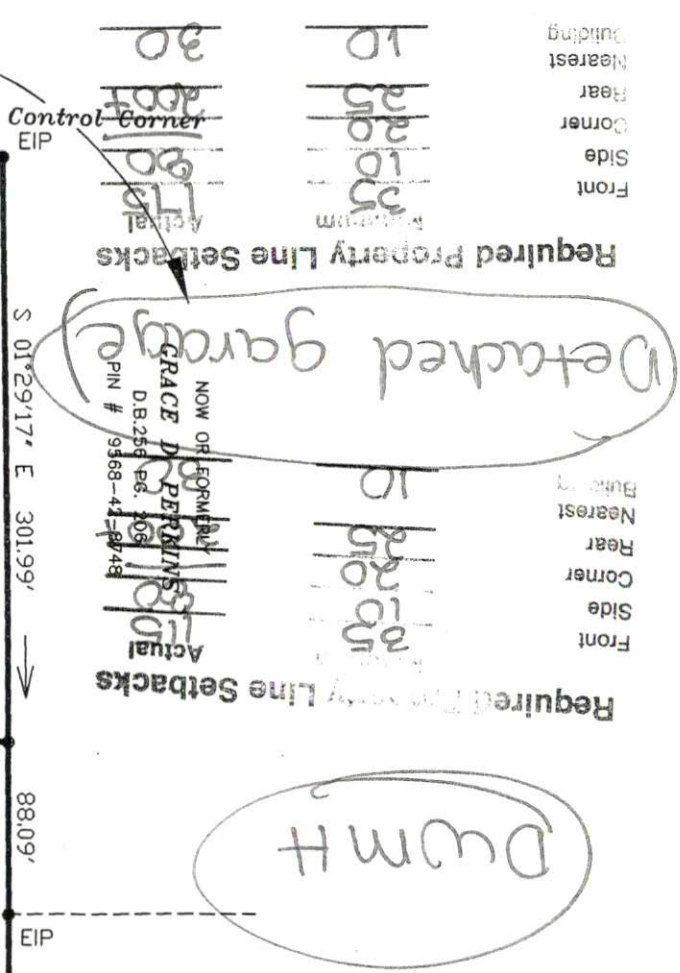 Control Corner
EIP
S 01°29'17" E 301.99'
88.09'
EIP
NOW OR FORMERLY
GRACE D. PERKINS
D.B.256 PG. 206
PIN #
DWMH
Required Line Setbacks
Actual
Front 35 115
Side 10 30
Corner 20
Rear 25
Nearest
Building 10
Detached garage
Required Property Line Setbacks
Minimum Actual
Front 35 175
Side 10
Corner 20
Rear 25 200+
Nearest
Building 10 30